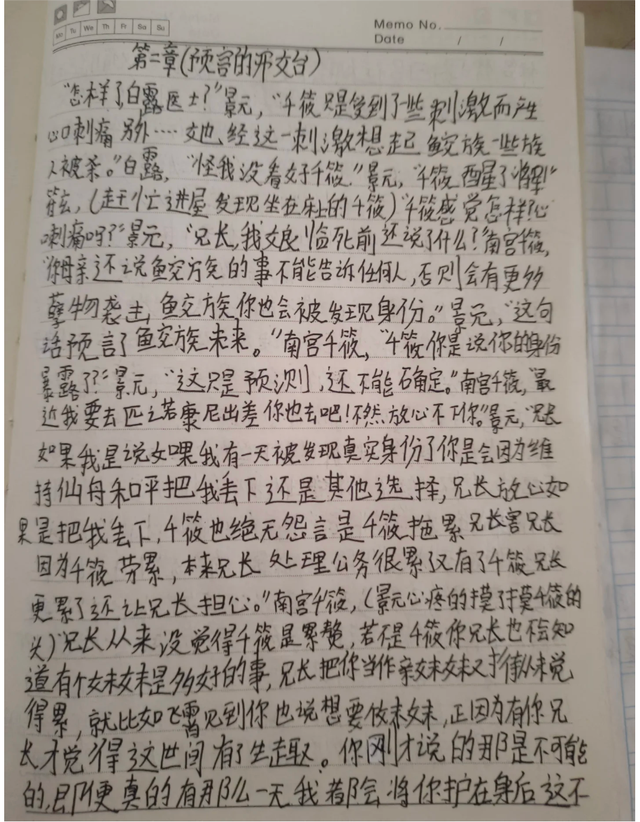 Memo No.
Mo Tu We Th Fr Sa Su
Date / /
第二章(预言的邪文台)
"怎样了白露医士?"景元,"千筱只是受到了一些刺激而产
心口刺痛另外……她经这一刺激想起鱼交族一些族
人被杀。"白露,"怪我没看好千筱."景元,"千筱醒了将军!"
符玄,(赶忙进屋发现坐在床上的千筱)"千筱感觉怎样?心
刺痛吗?"景元,"兄长,我父良临死前还说了什么?"南宫千筱,
"你母亲还说鱼交方矣的事不能告诉任何人,否则会有更多
孽物袭击,鱼交族你也会被发现身份。"景元,"这句
话预言了鱼交族未来。"南宫千筱,"千筱你是说你的身份
暴露了?"景元,"这只是预测,还不能确定。"南宫千筱,"最
近我要去匹诺康尼出差你也去吧!不然放心不下你。"景元,"兄长
如果我是说如果我有一天被发现真实身份了你是会因为维
持仙舟和平把我丢下还是其他选择,兄长放心如
果是把我丢下,千筱也绝无怨言是千筱拖累兄长害兄长
因为千筱劳累,本来兄长处理公务很累了又有了千筱兄长
更累了还让兄长担心。"南宫千筱,(景元心疼的摸了摸千筱的
头)"兄长从来没觉得千筱是累赘,若不是千筱你兄长也不会知
道有个妹妹是多好的事,兄长把你当作亲妹妹又对待从未觉
得累,就比如飞霄见到你也说想要做妹妹,正因为有你兄
长才觉得这世间有了生趣。你刚才说的那是不可能
的,即便真的有那么一天我都会将你护在身后这不